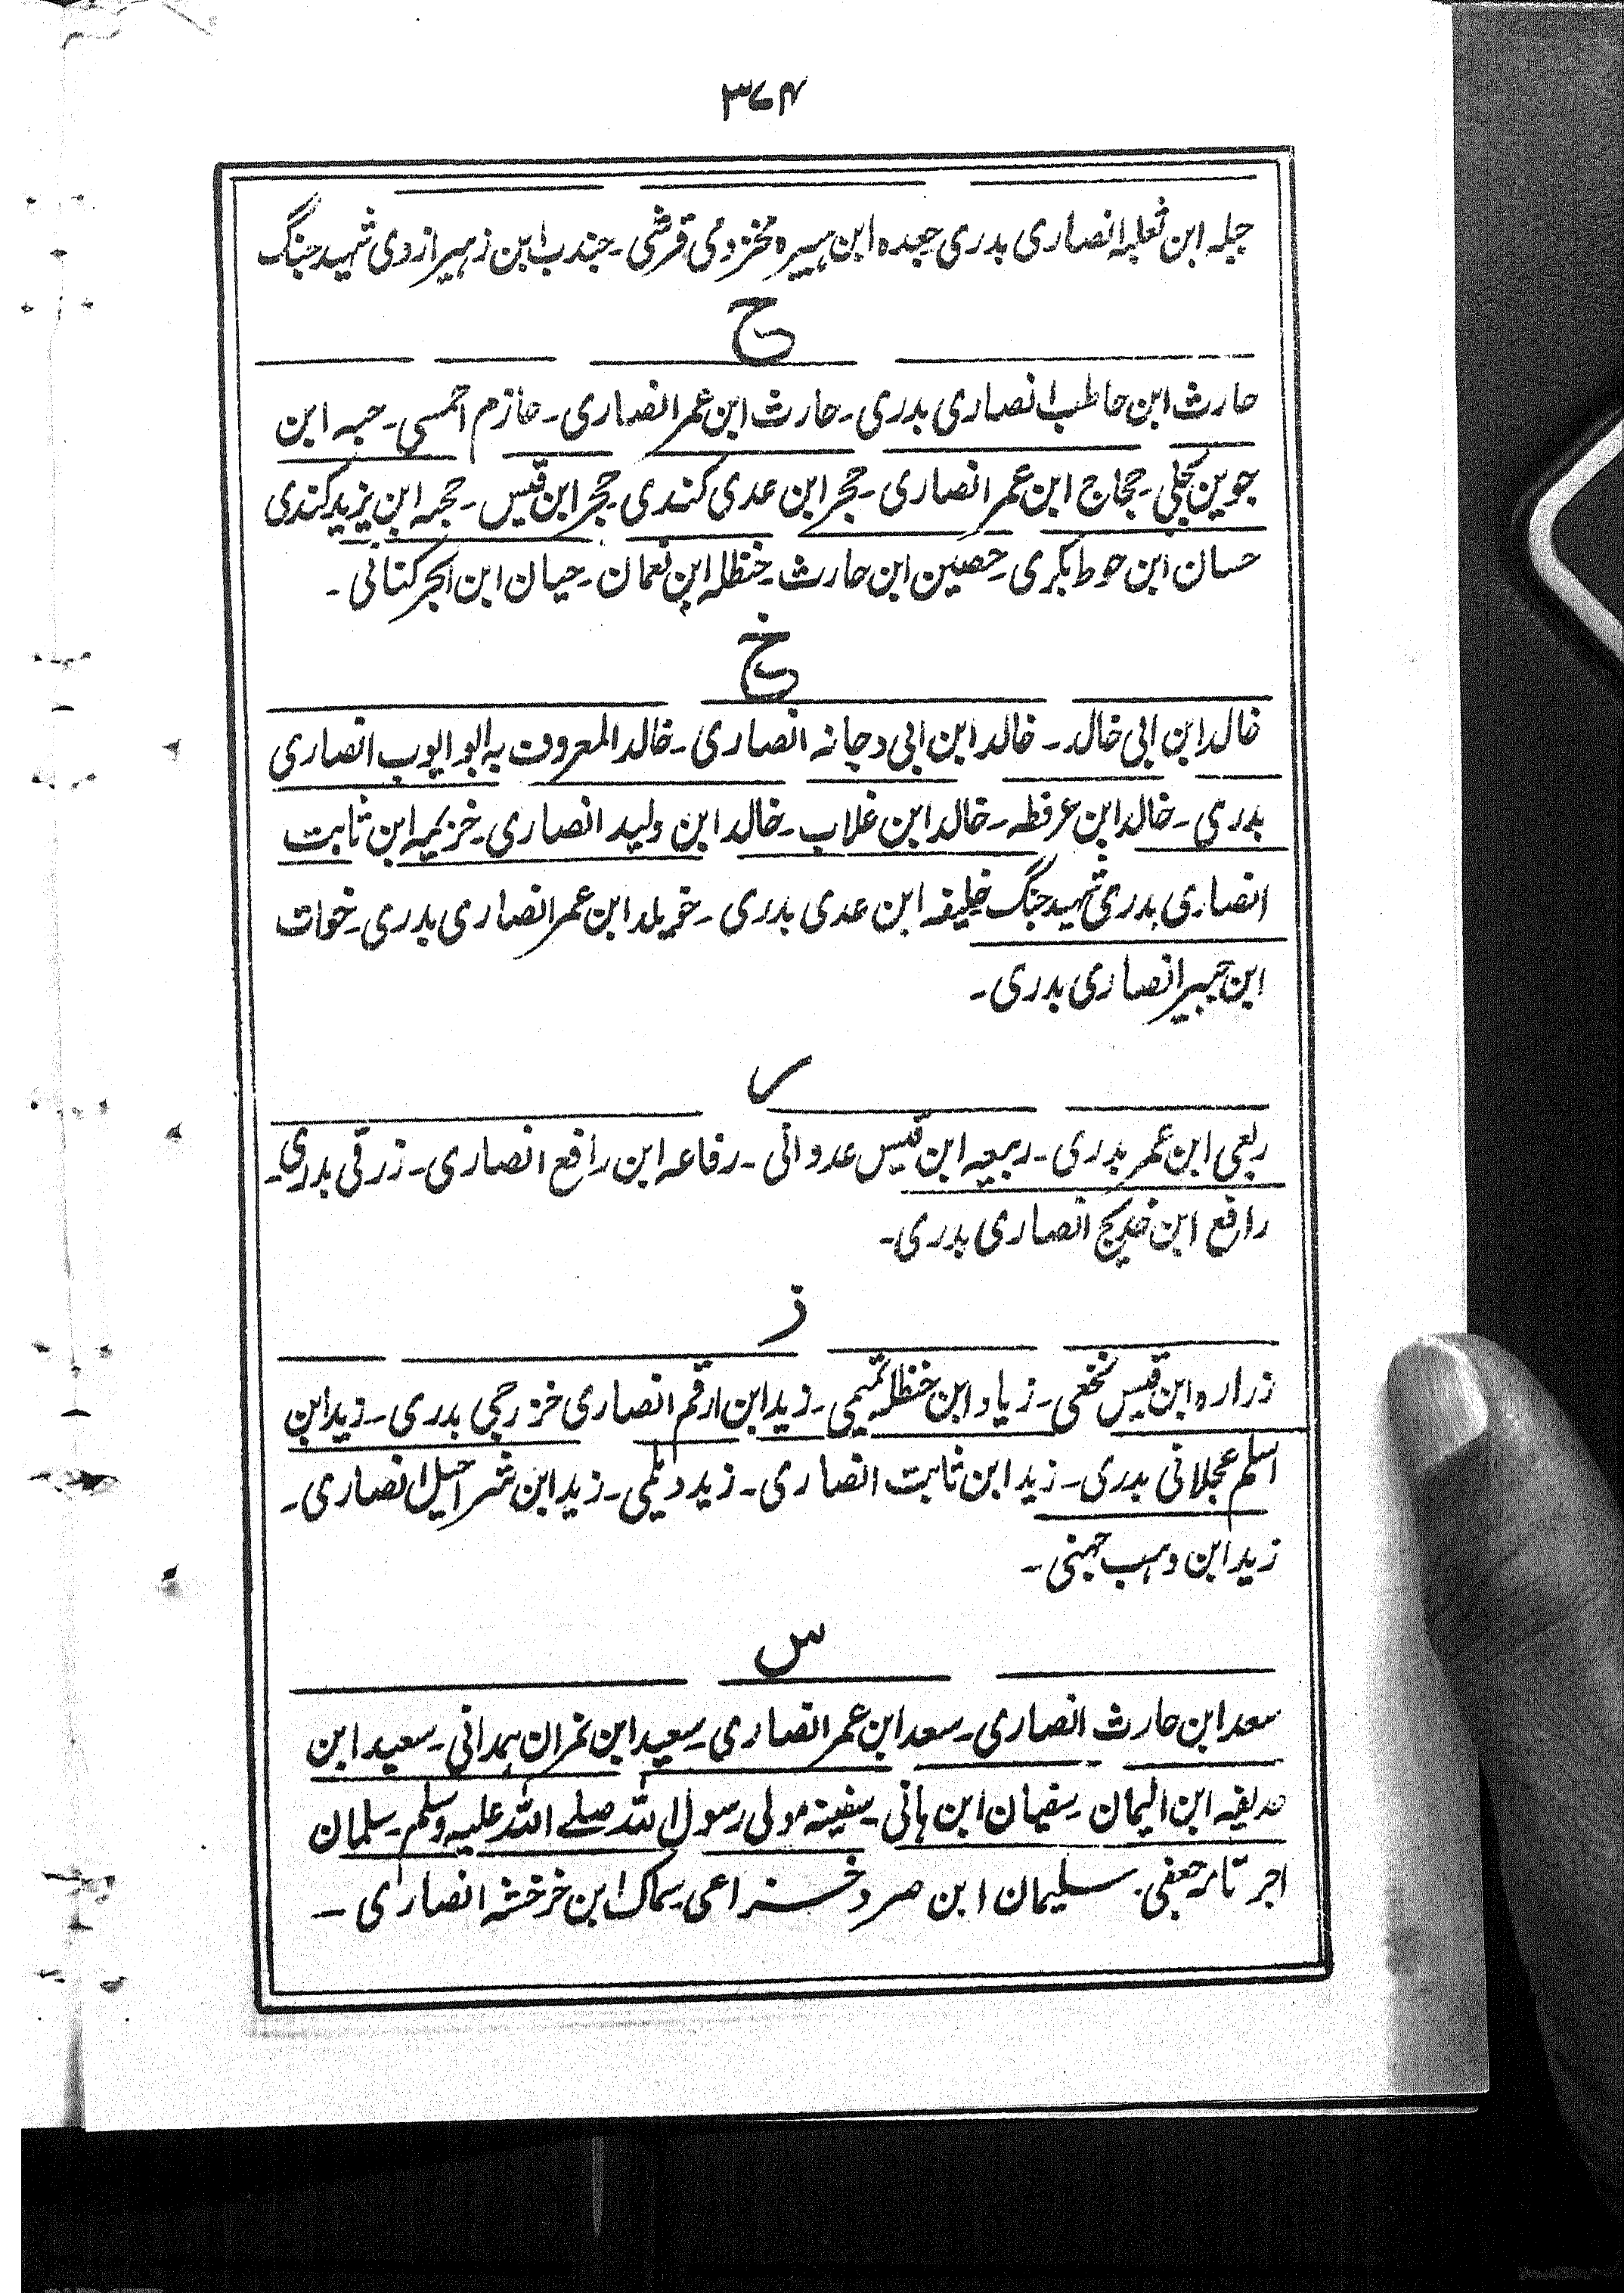 ۳۷۴
جبلہ ابن ثعلبہ انصاری بدری جعدہ ابن ہبیرہ مخزومی قرشی۔ جندب ابن زہیر ازدی شہید جنگ
ح
حارث ابن حاطب انصاری بدری۔ حارث ابن عمر انصاری۔ حازم احمسی۔ حبہ ابن
جوین بجلی۔ حجاج ابن عمر انصاری۔ حجر ابن عدی کندی۔ حجر ابن قیس۔ حجبہ ابن یزید کندی
حسان ابن حوط بکری۔ حصین ابن حارث۔ حنظلہ ابن نعمان۔ حیان ابن ابجر کنانی۔
خ
خالد ابن ابی خالد۔ خالد ابن ابی دجانہ انصاری۔ خالد المعروف بہ ابو ایوب انصاری
بدری۔ خالد ابن عرفطہ۔ خالد ابن غلاب۔ خالد ابن ولید انصاری۔ خزیمہ ابن ثابت
انصاری بدری شہید جنگ خلیفہ ابن عدی بدری۔ خویلد ابن عمر انصاری بدری۔ خوات
ابن جبیر انصاری بدری۔
ر
ربعی ابن عمر بدری۔ ربیعہ ابن قیس عدوانی۔ رفاعہ ابن رافع انصاری۔ زرقی بدری۔
رافع ابن خدیج انصاری بدری۔
ز
زرارہ ابن قیس نخعی۔ زیاد ابن حنظلہ تمیمی۔ زید ابن ارقم انصاری خزرجی بدری۔ زید ابن
اسلم عجلانی بدری۔ زید ابن ثابت انصاری۔ زید دیلمی۔ زید ابن شراحیل انصاری۔
زید ابن وہب جہنی۔
س
سعد ابن حارث انصاری۔ سعد ابن عمر انصاری۔ سعید ابن نمران ہمدانی۔ سعید ابن
حدیفہ ابن الیمان۔ سفیان ابن ہانی۔ سفینہ مولی رسول اللہ صلے اللہ علیہ وسلم۔ سلمان
جعفی۔ سلیمان ابن صرد خزاعی۔ سماک ابن خرخشہ انصاری۔